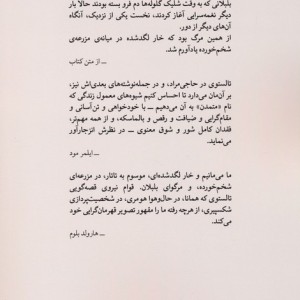 بلبلانی که به وقت شلیک گلوله‌ها دم فرو بسته بودند حالا بار
دیگر نغمه‌سرایی آغاز کردند، نخست یکی از نزدیک، آنگاه
آن‌های دیگر از دور.
از همین مرگ بود که خار لگدشده در میانه‌ی مزرعه‌ی
شخم‌خورده یادآورم شد.
ــ از متن کتاب
تالستوی در حاجی‌مراد، و در جمله‌نوشته‌های بعدی‌اش نیز،
بر آن‌مان می‌دارد تا احساس کنیم شیوه‌های معمول زندگی که
نام «تمدن» به آن می‌دهیم ــ با خودخواهی و تن‌آسانی و
مقام‌گرایی و ضیافت و رقص و بالماسکه، و از همه مهم‌تر،
فقدان کامل شور و شوق معنوی ــ در نظرش انزجارآور
می‌نماید.
ــ ایلمر مود
ما می‌مانیم و خار لگدشده‌ای، موسوم به تاتار، در مزرعه‌ی
شخم‌خورده، و مرگ‌وای بلبلان. قوام نیروی قصه‌گویی
تالستوی که همانا، در حال‌وهوا هومری، در شخصیت‌پردازی
شکسپیری، از هرچه رفته ما را مقهور تصویر قهرمان‌گرایی خود
می‌کند.
ــ هارولد بلوم